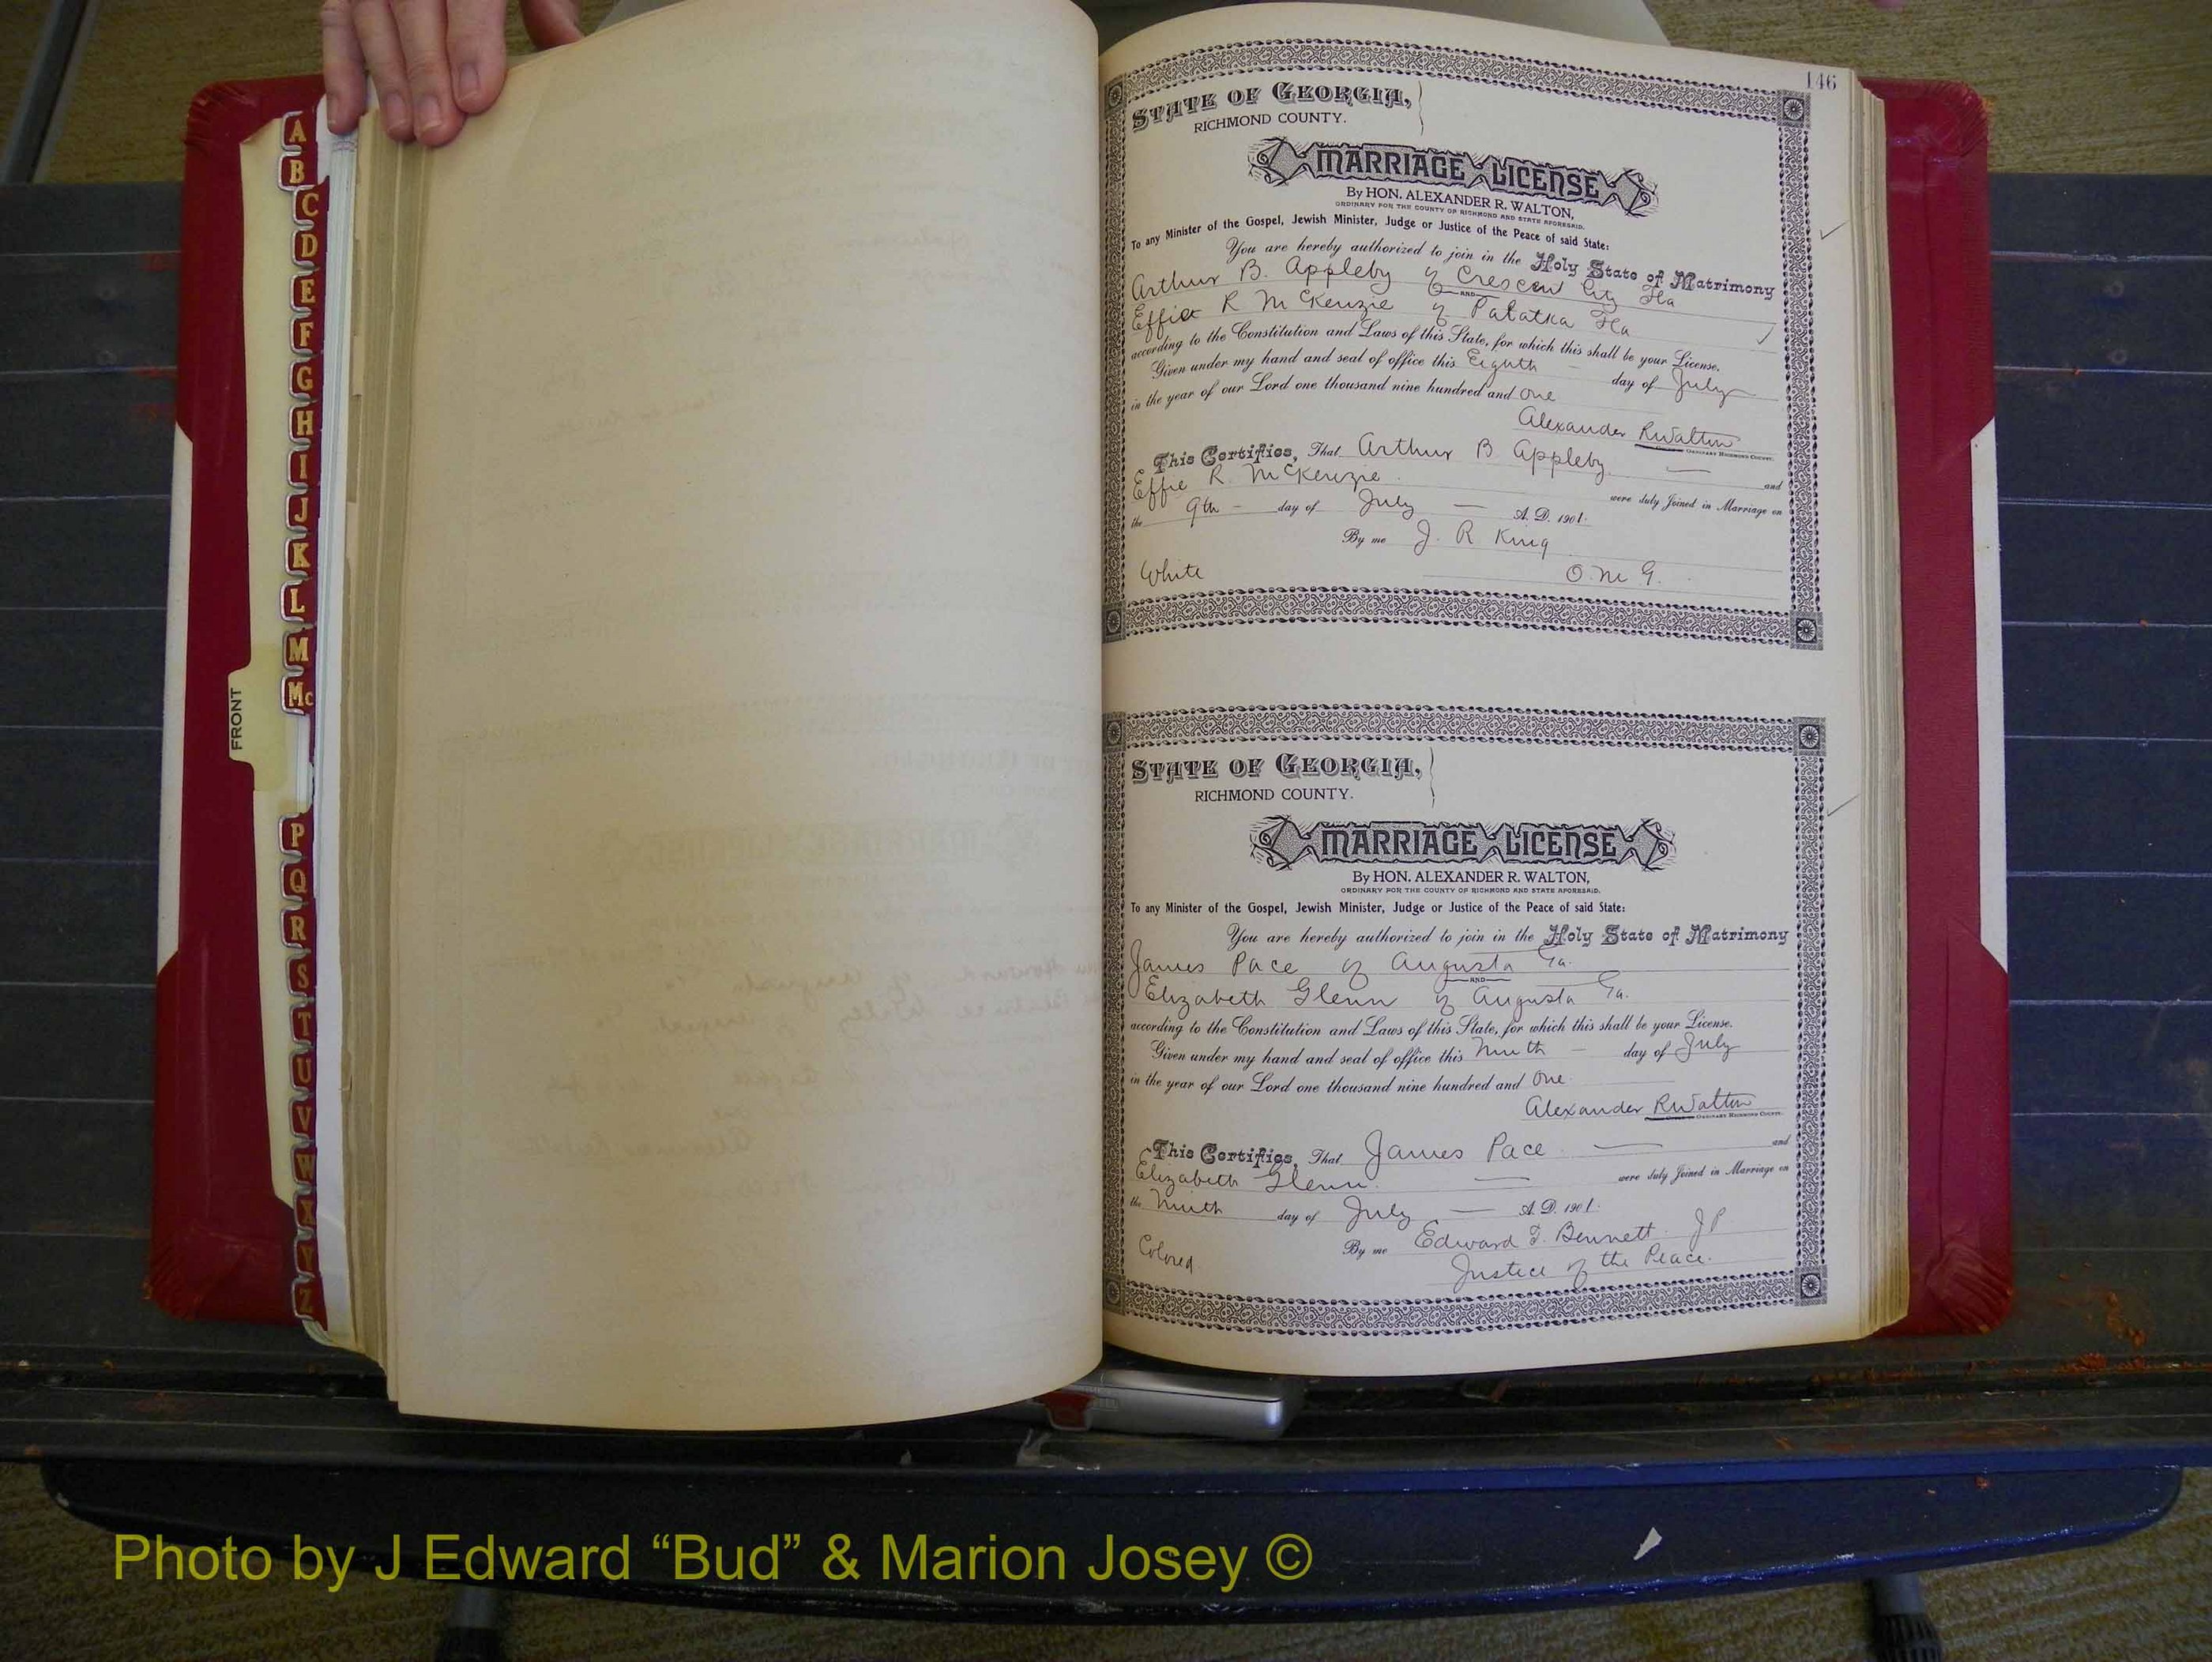 A
B
C
D
E
F
G
H
I
J
K
L
M
Mc
FRONT
P
Q
R
S
T
U
V
W
X
Y
Z
146
STATE OF GEORGIA,
RICHMOND COUNTY.
MARRIAGE LICENSE
By HON. ALEXANDER R. WALTON,
ORDINARY FOR THE COUNTY OF RICHMOND AND STATE AFORESAID.
To any Minister of the Gospel, Jewish Minister, Judge or Justice of the Peace of said State:
You are hereby authorized to join in the Holy State of Matrimony
Arthur B. Appleby of Crescent City Fla
AND
Effie R McKenzie of Palatka Fla
according to the Constitution and Laws of this State, for which this shall be your License.
Given under my hand and seal of office this Eighth day of July
in the year of our Lord one thousand nine hundred and one
Alexander R Walton
ORDINARY RICHMOND COUNTY.
This Certifies, That Arthur B Appleby and
Effie R. McKenzie were duly Joined in Marriage on
the 9th day of July A. D. 1901.
By me J. R King
White O. M G.
STATE OF GEORGIA,
RICHMOND COUNTY.
MARRIAGE LICENSE
By HON. ALEXANDER R. WALTON,
ORDINARY FOR THE COUNTY OF RICHMOND AND STATE AFORESAID.
To any Minister of the Gospel, Jewish Minister, Judge or Justice of the Peace of said State:
You are hereby authorized to join in the Holy State of Matrimony
James Pace of Augusta Ga.
AND
Elizabeth Glenn of Augusta Ga.
according to the Constitution and Laws of this State, for which this shall be your License.
Given under my hand and seal of office this Ninth day of July
in the year of our Lord one thousand nine hundred and One
Alexander R Walton
ORDINARY RICHMOND COUNTY.
This Certifies, That James Pace and
Elizabeth Glenn. were duly Joined in Marriage on
the Ninth day of July A. D. 1901.
By me Edward T. Bennett J P
Colored Justice of the Peace.
Photo by J Edward “Bud” & Marion Josey ©